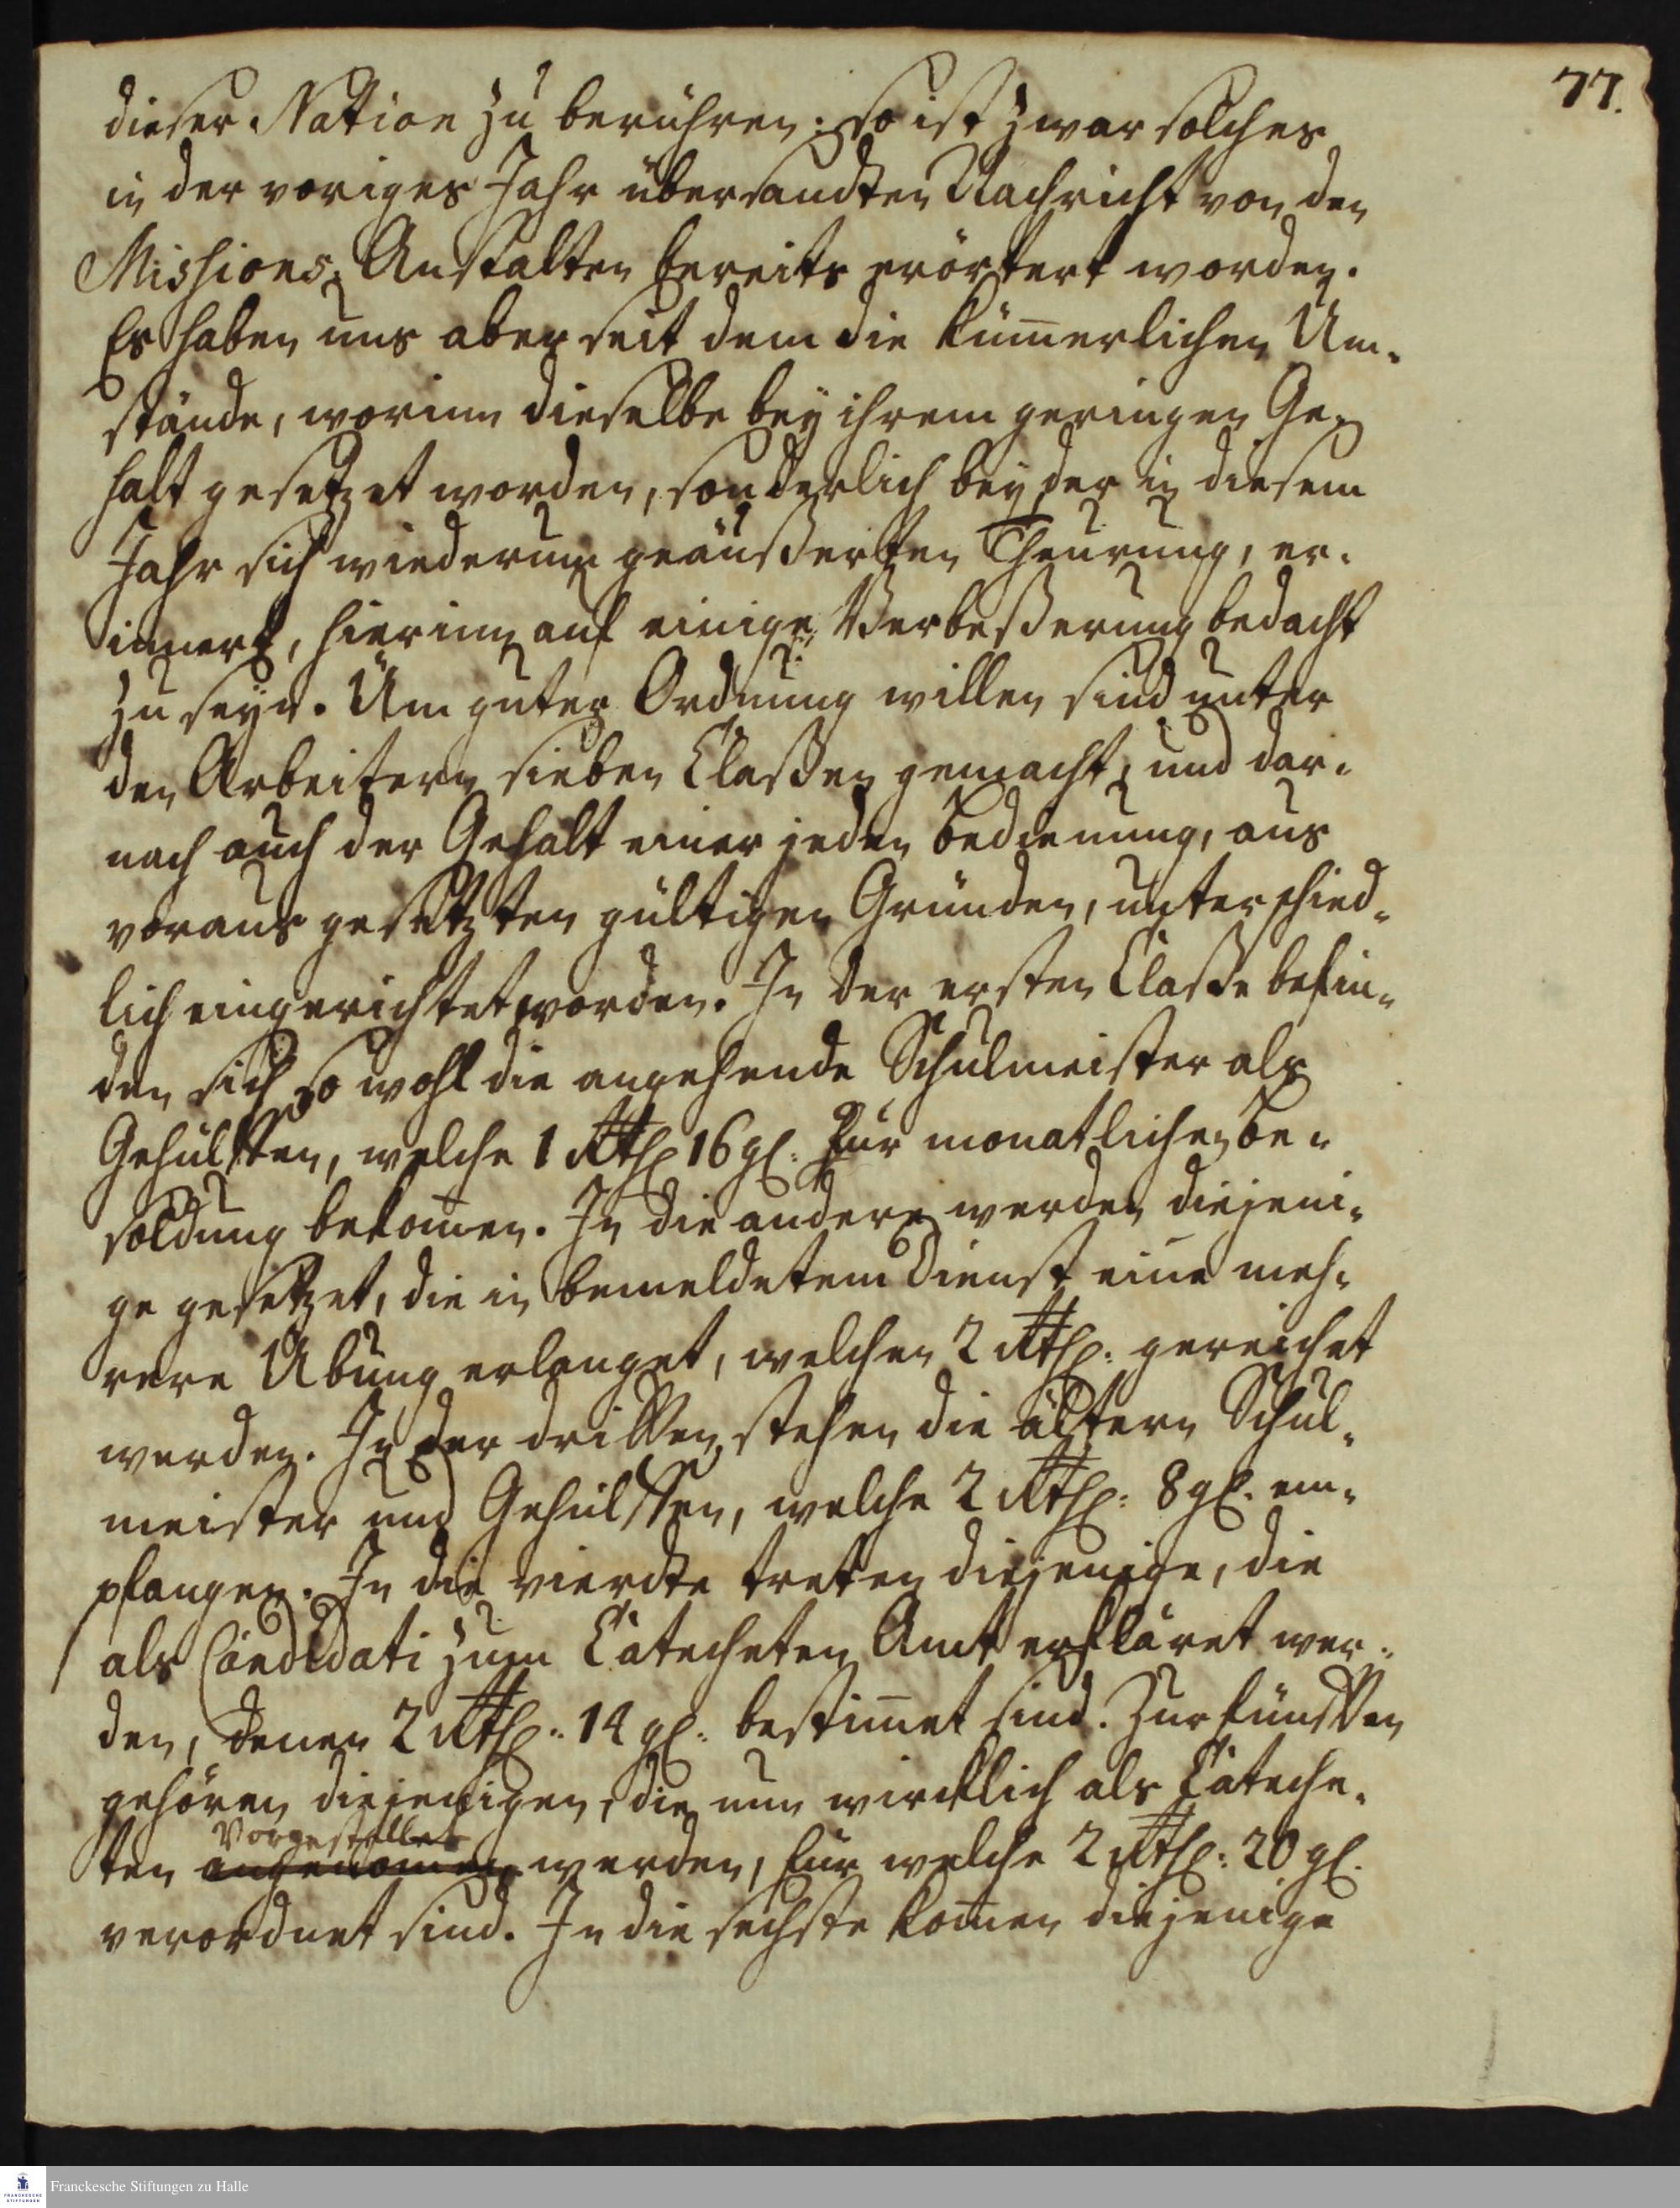 77.
dieser Nation zu berühren: so ist zwar solches
in der voriges Jahr übersandten Nachricht von den
Missions-Anstalten bereits erörtert worden.
Es haben uns aber seit dem die kum̄erlichen Um-
stände, worinn dieselbe bey ihrem geringen Ge-
halt gesetzet worden, sonderlich bey der in diesem
Jahr sich wiederum geäußerten Theurung, er-
innert, hierinn auf einige Verbeßerung bedacht
zu seyn. Um guter Ordnung willen sind unter
den Arbeitern sieben Claßen gemacht, und dar-
nach auch der Gehalt einer jeden Bedienung, aus
voraus gesetzten gültigen Gründen, unterschied-
lich eingerichtet worden. In der ersten Claße befin-
den sich so wohl die angehende Schulmeister als
Gehülffen, welche 1 Rthl 16 gl: zur monatlichen Be-
soldung bekom̄en. In die andere werden diejeni-
ge gesetzet, die in bemeldetem Dienst eine meh-
rere Übung erlanget, welchen 2 Rthl: gereichet
werden. In der dritten stehen die ältern Schul-
meister und Gehülffen, welche 2 Rthl: 8 gl. em-
pfangen. In die vierdte treten diejenige, die
als Candidati zum Catecheten Amt erkläret wer-
den, denen 2 Rthl: 14 gl: bestim̄et sind. Zur fünfften
gehören diejenigen, die nun wircklich als Cateche-
vorgestellet
ten angenom̄en werden, für welche 2 Rthl: 20 gl.
verordnet sind. In die sechste kom̄en diejenige
Franckesche Stiftungen zu Halle
FRANCKESCHE
STIFTUNGEN